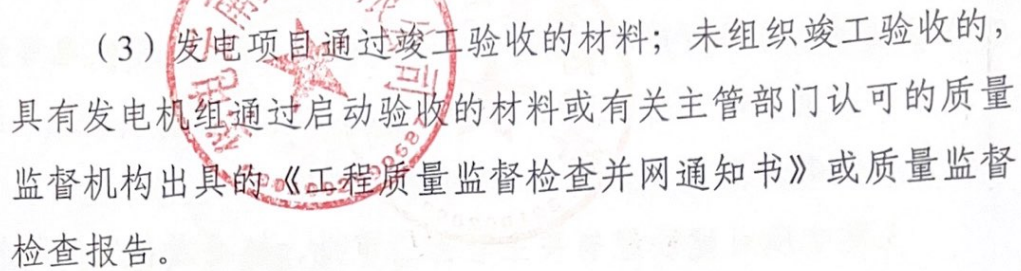 （3）发电项目通过竣工验收的材料；未组织竣工验收的，
具有发电机组通过启动验收的材料或有关主管部门认可的质量
监督机构出具的《工程质量监督检查并网通知书》或质量监督
检查报告。